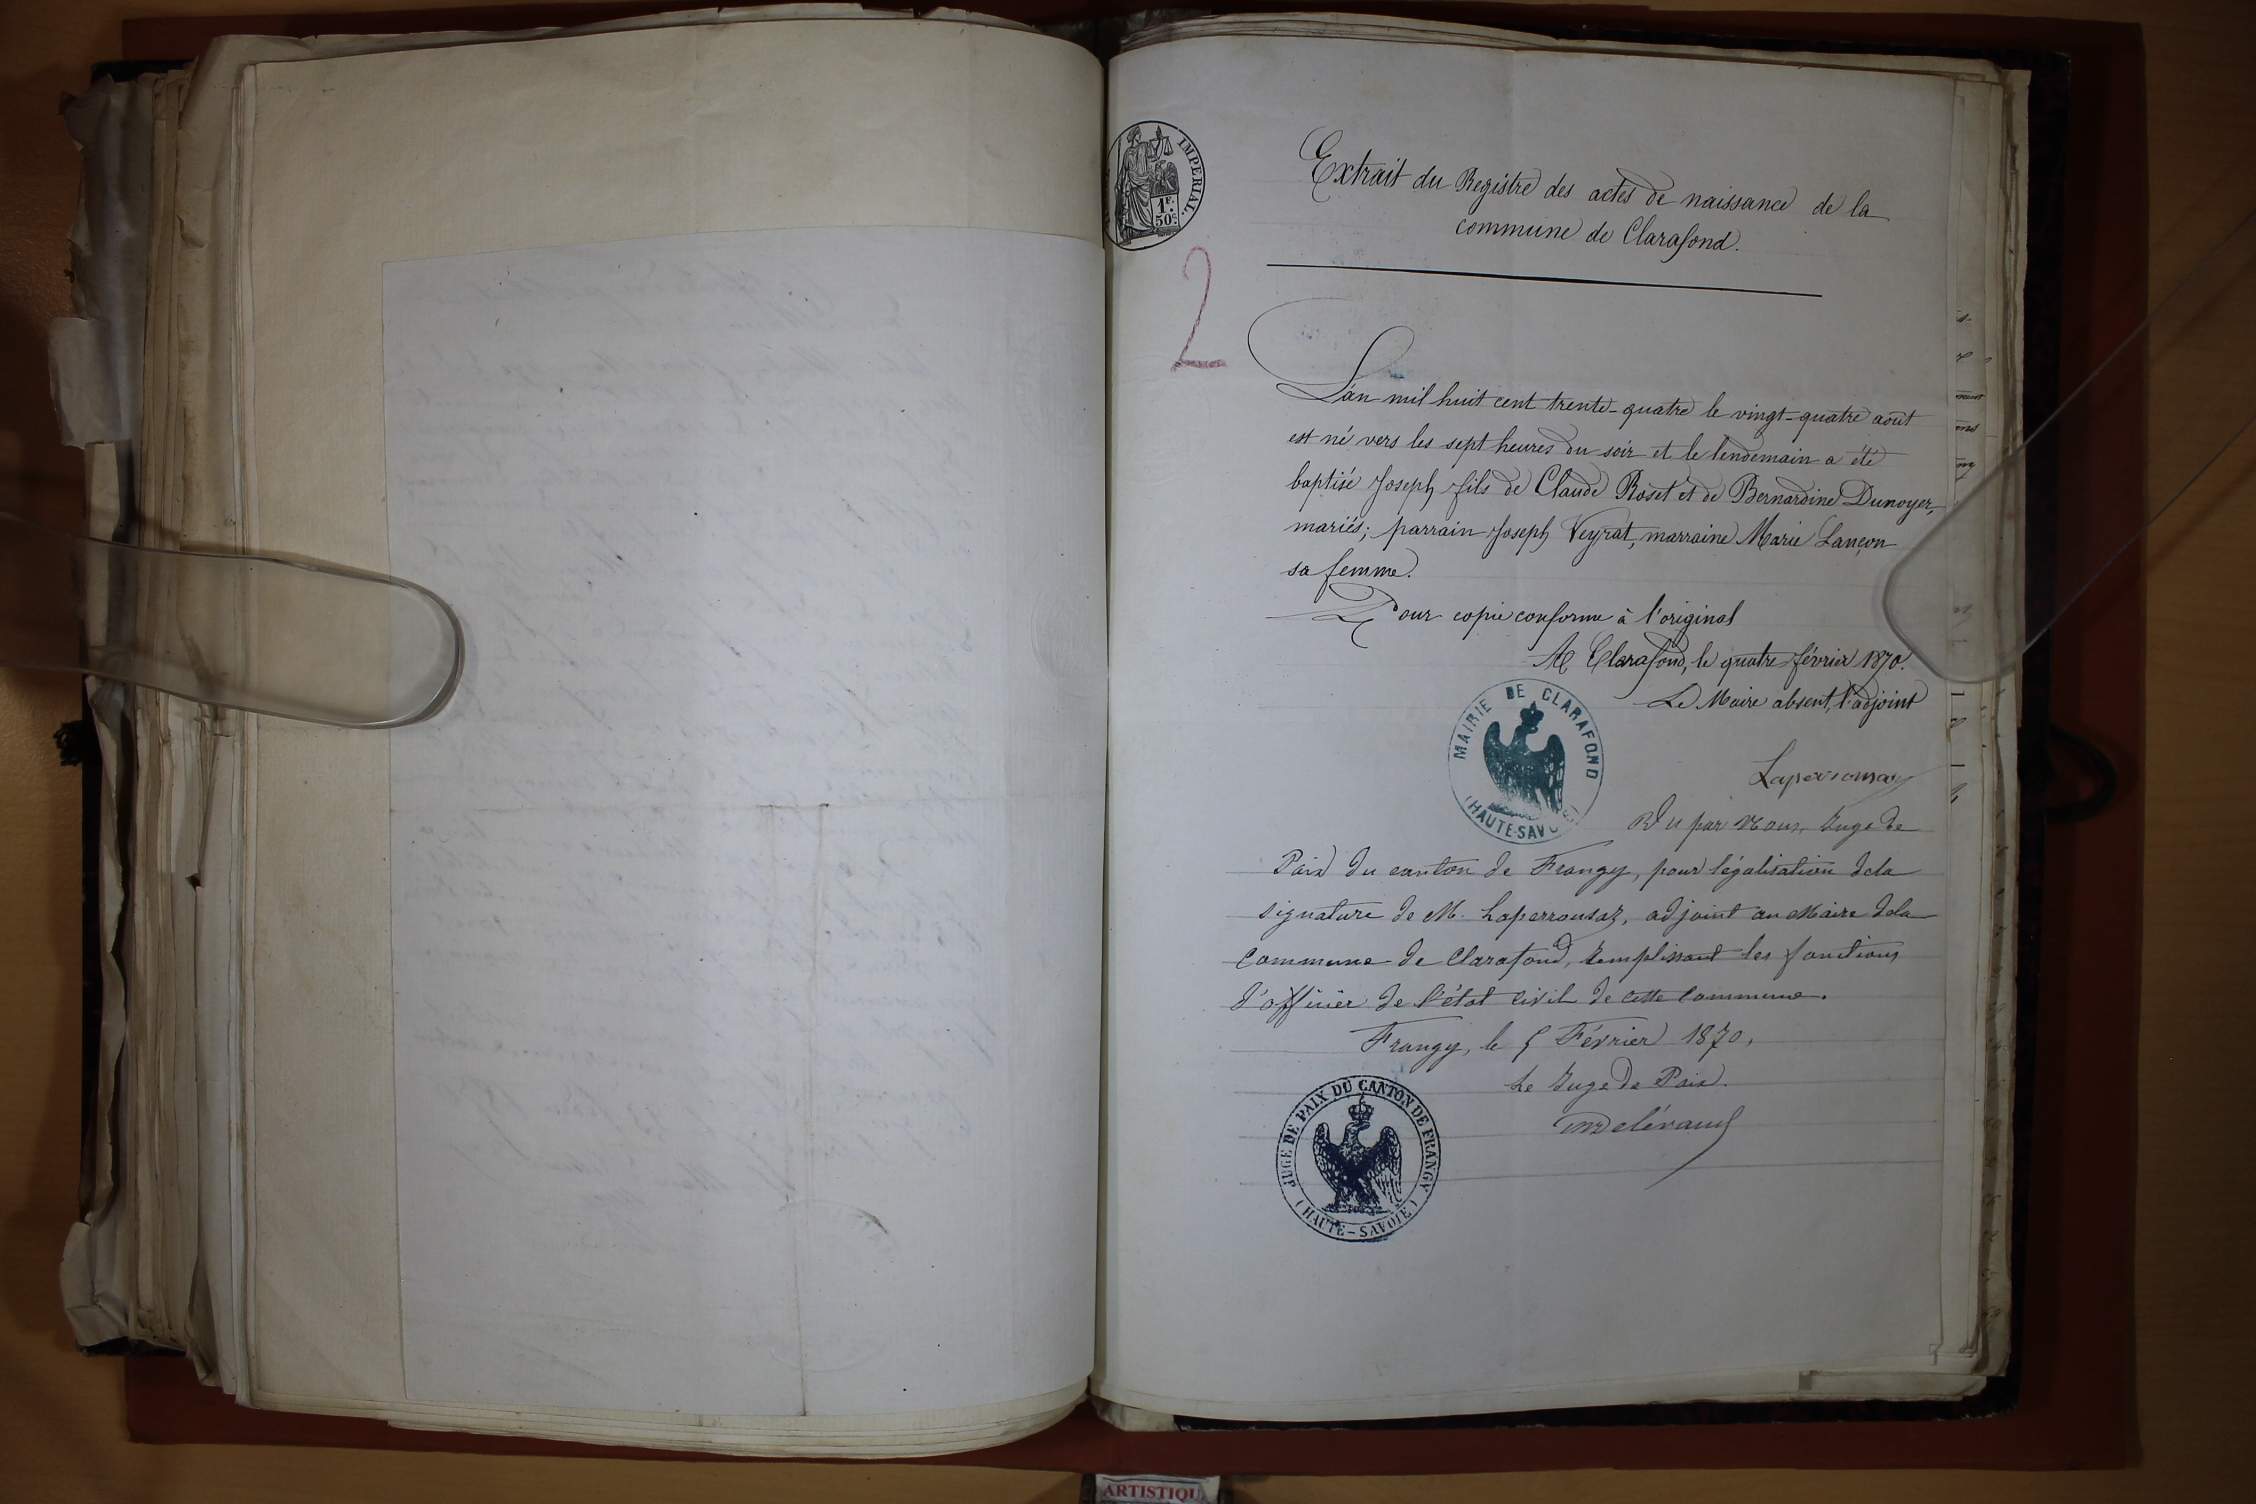 IMPERIAL.
1F.
50c.
2
Extrait du Registre des actes de naissance de la
commune de Clarafond.
L'an mil huit cent trente-quatre le vingt-quatre août
est né vers les sept heures du soir et le lendemain a été
baptisé Joseph fils de Claude Roset et de Bernardine Dunoyer,
mariés; parrain Joseph Veyrat, marraine Marie Lançon
sa femme.
Pour copie conforme à l'original
A Clarafond, le quatre février 1870.
Le Maire absent, l'adjoint
MAIRIE DE CLARAFOND
(HAUTE-SAVOIE)
Laperrousaz
Vu par Nous, Juge de
Paix du canton de Frangy, pour légalisation de la
signature de M. Laperrousaz, adjoint au Maire de la
commune de Clarafond, remplissant les fonctions
d'officier de l'état civil de cette commune.
Frangy, le 5 Février 1870,
Le Juge de Paix.
JUGE DE PAIX DU CANTON DE FRANGY
(HAUTE-SAVOIE)
ARTISTIQU